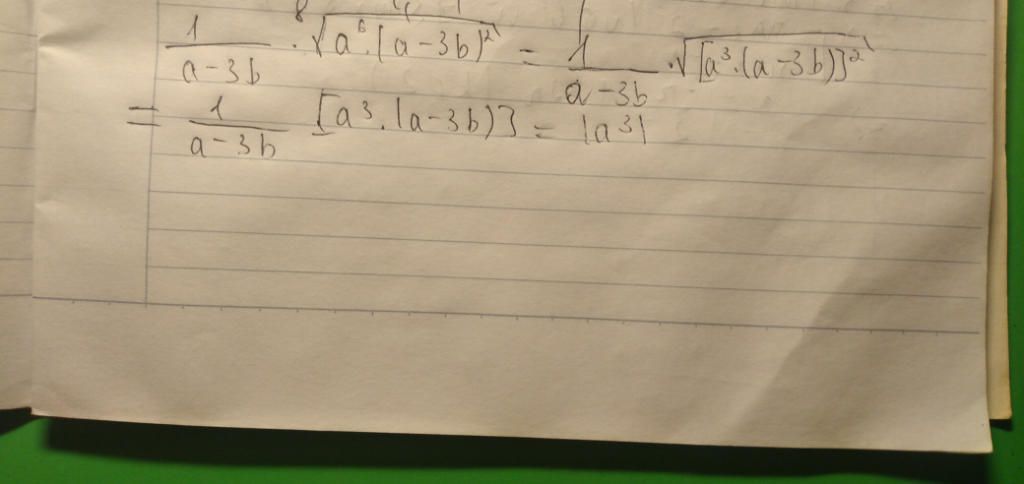 1/(a-3b) · √(a⁶·(a-3b)²) = 1/(a-3b) · √([a³·(a-3b)]²)
= 1/(a-3b) [a³·(a-3b)] = |a³|